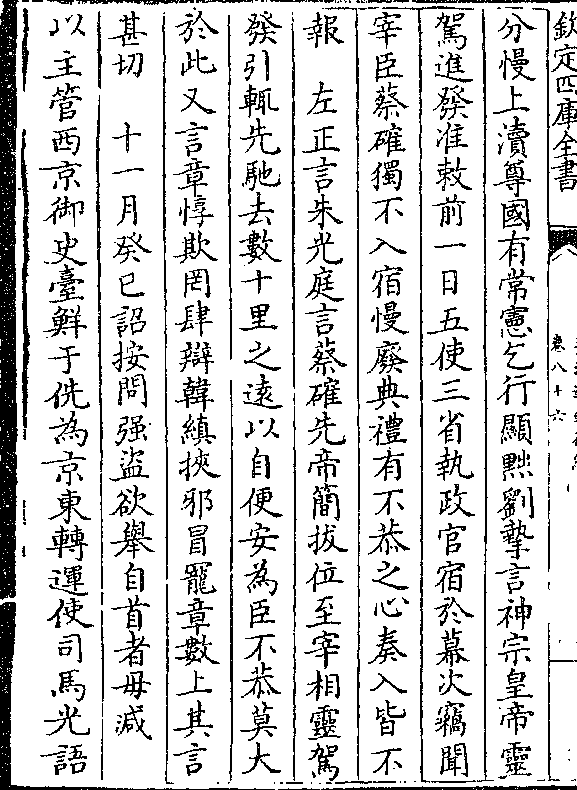 欽定四庫全書
卷八十六
分慢上瀆尊國有常憲乞行顯黜劉摯言神宗皇帝靈
駕進發准敕前一日五使三省執政官宿於幕次竊聞
宰臣蔡確獨不入宿慢廢典禮有不恭之心奏入皆不
報　左正言朱光庭言蔡確先帝簡拔位至宰相靈駕
發引輒先馳去數十里之遠以自便安為臣不恭莫大
於此又言章惇欺罔肆辯韓縝挾邪冒寵章數上其言
甚切　十一月癸巳詔按問强盜欲舉自首者毋減
以主管西京御史臺鮮于侁為京東轉運使司馬光語